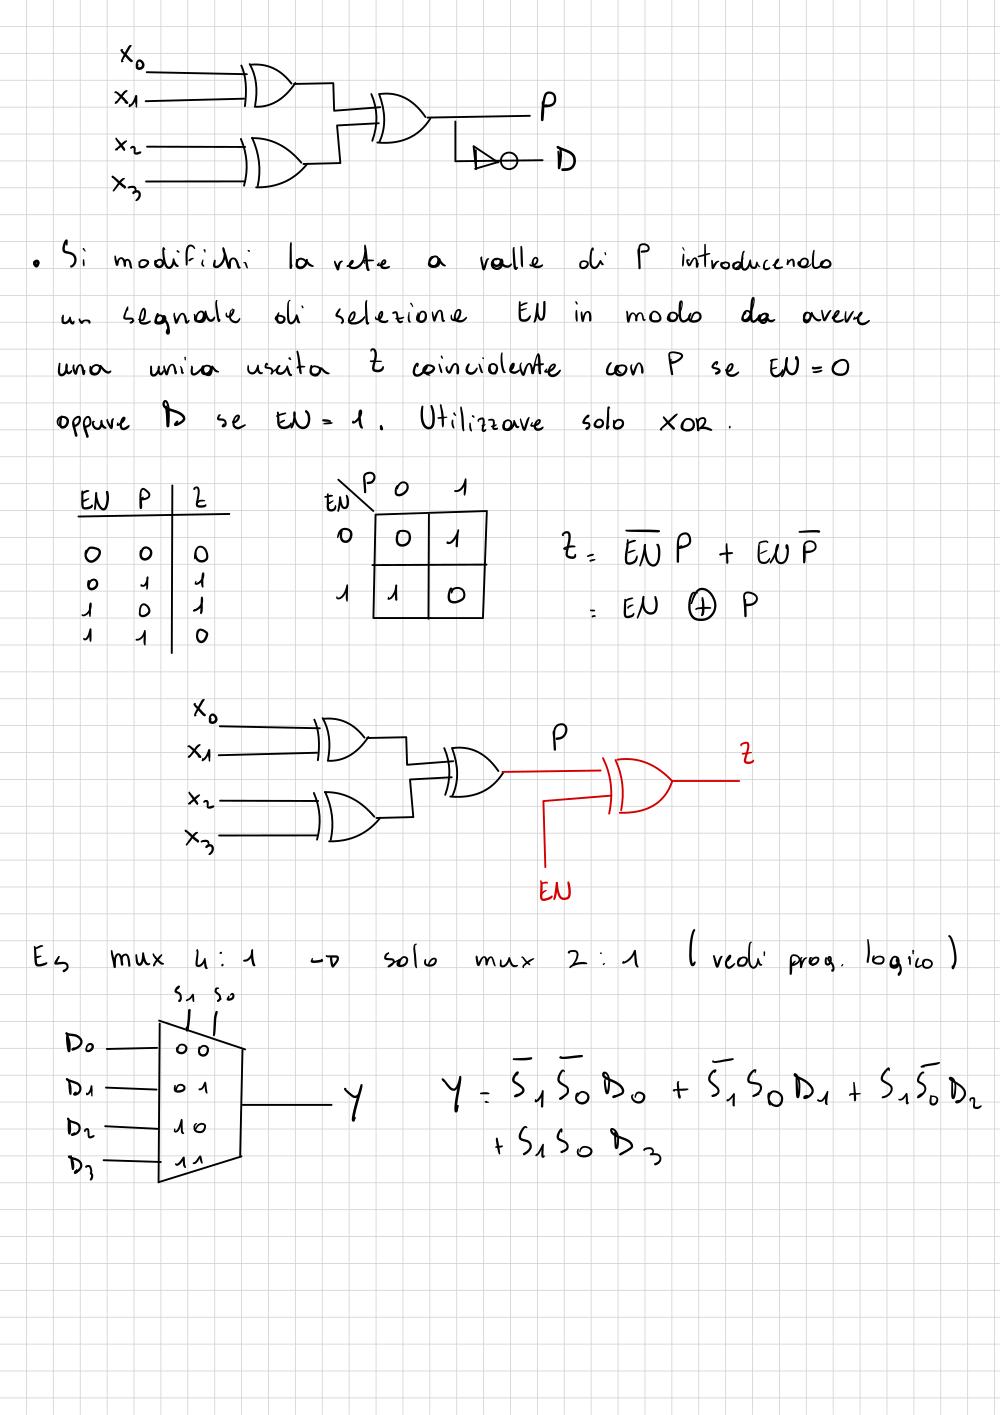 X0
X1
X2
X3
P
D
• Si modifichi la rete a valle di P introducendo
un segnale di selezione EN in modo da avere
una unica uscita Z coincidente con P se EN = 0
oppure D se EN = 1. Utilizzare solo XOR.
EN P Z
0 0 0
0 1 1
1 0 1
1 1 0
EN P 0 1
0 0 1
1 1 0
Z = E̅N̅ P + EN P̅
= EN ⊕ P
X0
X1
X2
X3
P
Z
EN
Es mux 4:1 → solo mux 2:1 (vedi prog. logico)
S1 S0
D0 0 0
D1 0 1
D2 1 0
D3 1 1
Y
Y = S̅1 S̅0 D0 + S̅1 S0 D1 + S1 S̅0 D2
+ S1 S0 D3